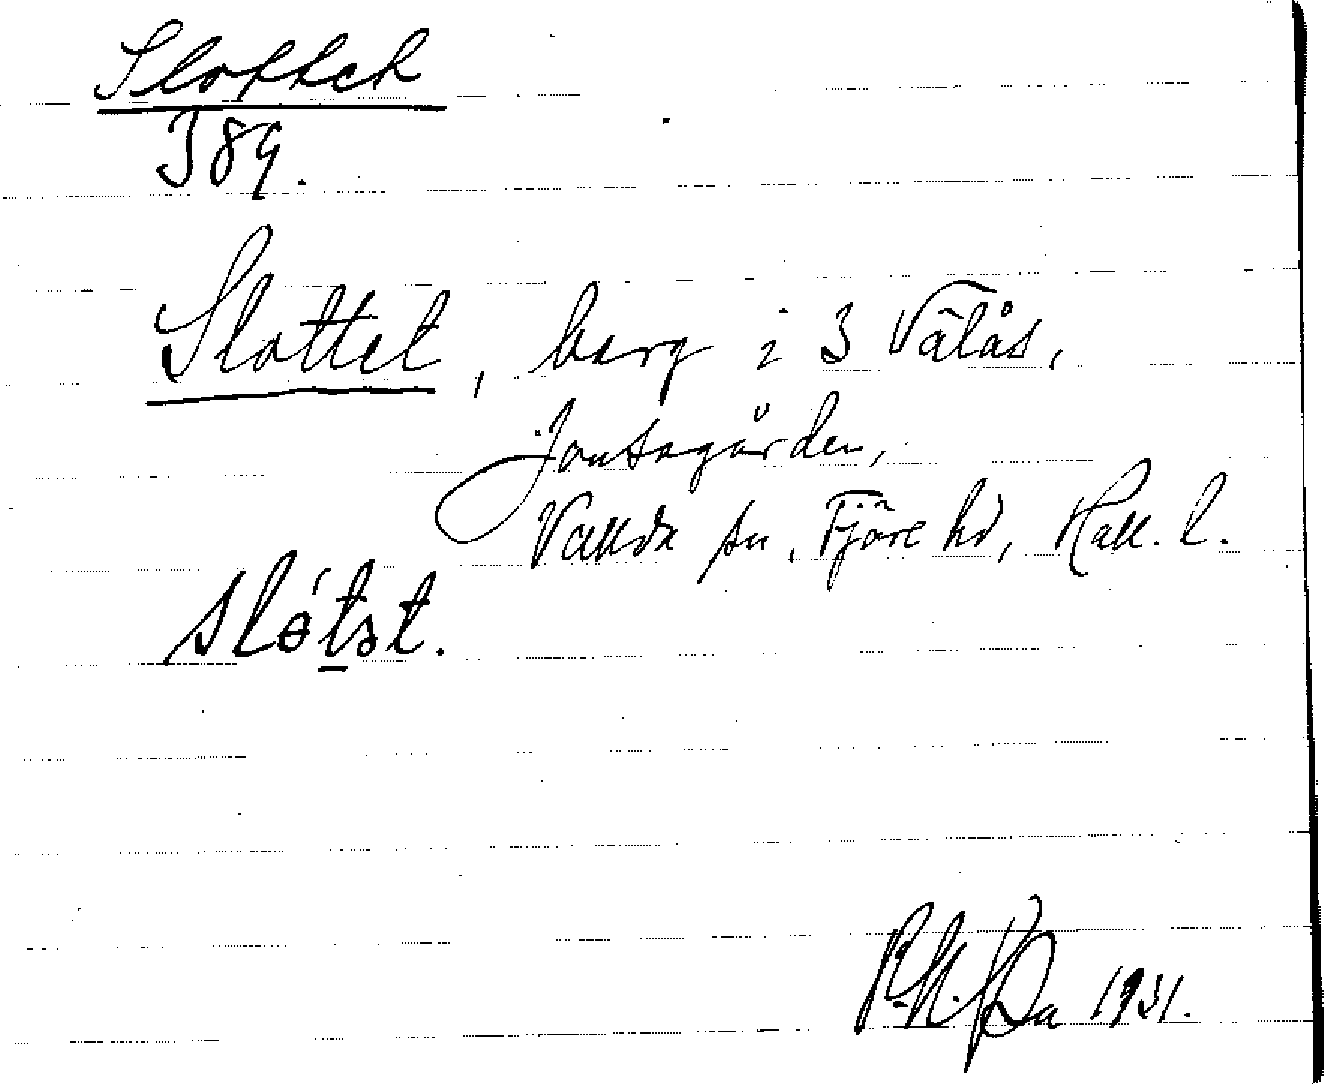 Slottet
J 89.
Slottet, berg i 3 Välås,
Jonsagården,
Vallda sn, Fjäre hd, Hall. l.
slótət.
1931.